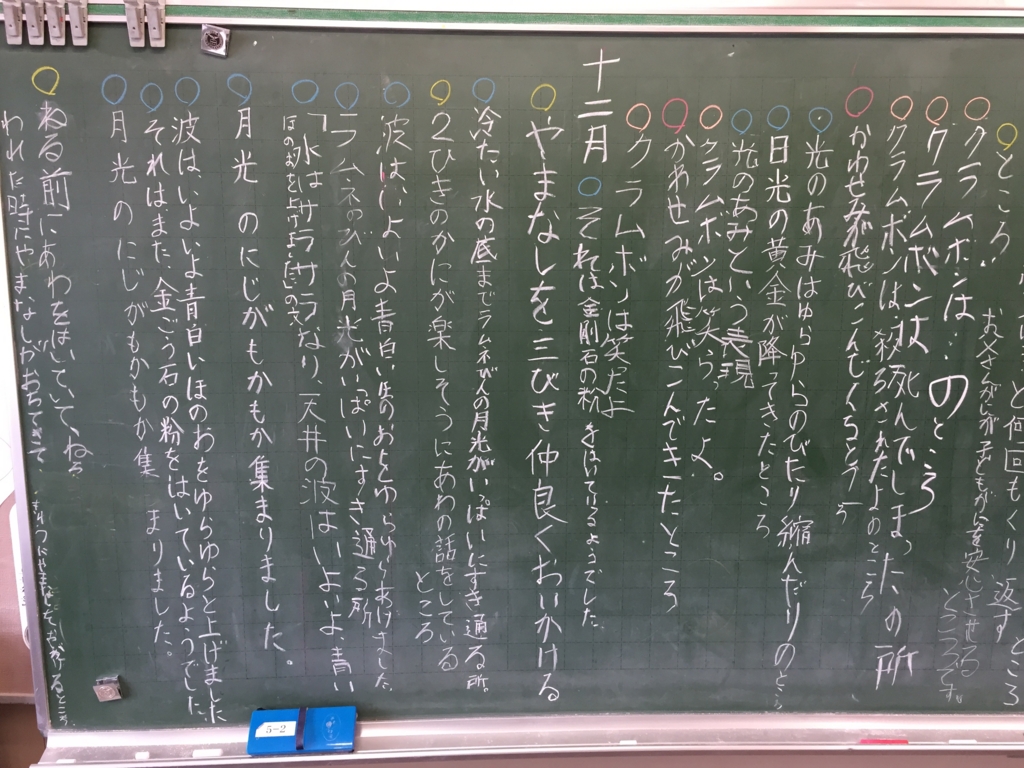 と何回もくり返すところ
ところ お父さんがしが子どもが を安しさせるところです。
クラムボンは…のところ
クラムボンは 死んでしまったの所
クラムボンは殺されたよのところ
かわせみが飛びこんでくるところ
光のあみはゆらゆらのびたり縮んだりのところ
日光の黄金が降ってきたところ
光のあみという表現
クラムボンは笑ったよ。
かわせみが飛びこんできたところ
クラムボンは笑ったよ
十二月 それは金剛石の粉をはいているようでした。
やまなしを三びき仲良くおいかける
冷たい水の底までラムネびんの月光がいっぱいにすき通る所。
2ひきのかにが楽しそうにあわの話をしているところ
波はいよいよ青白いほのおをゆらゆらとあげました
ラムネのびんの月光がいっぱいにすき通る所
「水はサラサラなり、天井の波はいよいよ、青い
ほのおを上げました」の文
月光のにじがもかもか集まりました。
波は、いよいよ青白いほのおをゆらゆらと上げました
それはまた、金ごう石の粉をはいているようでした、
月光のにじがもかもか集まりました。
ねる前にあわをはいていてねる
われた時にやまなしがおちてきて
5-2